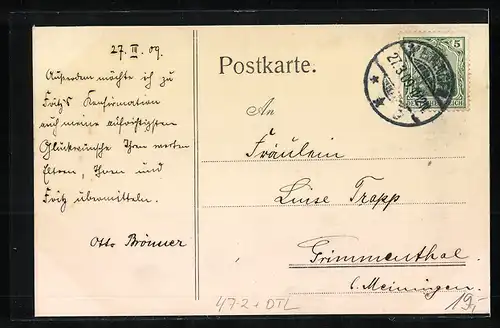 27. III. 09.
Außerdem möchte ich zu
Fritz's Konfirmation
auch meine aufrichtigsten
Glückwünsche Ihren werten
Eltern, Ihnen und
Fritz übermitteln.
Otto Brönner
Postkarte.
An
Fräulein
Luise Trapp
Grimmenthal
b. Meiningen.
5
27.3.09
47-2 + DTL
19,-